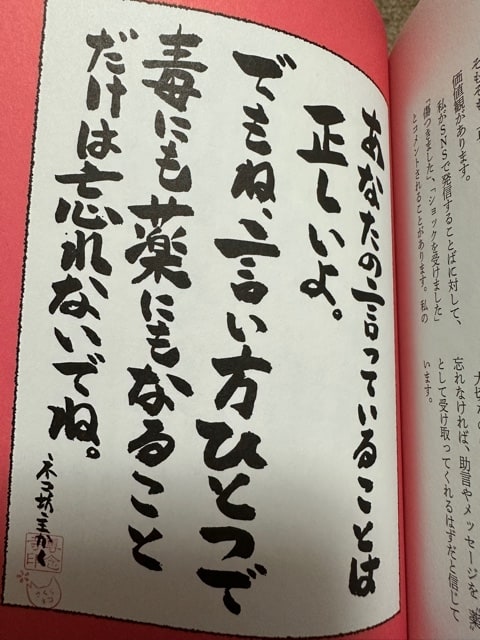 価値観があります。
私がSNSで発信することばに対して、
「傷つきました」、「ショックを受けました」
とコメントされることがあります。私の
忘れなければ、助言やメッセージを 薬
として受け取ってくれるはずだと信じて
います。
あなたの言っていることは
正しいよ。
でもね、言い方ひとつで
毒にも薬にもなること
だけは忘れないでね。
ネコ坊主かく